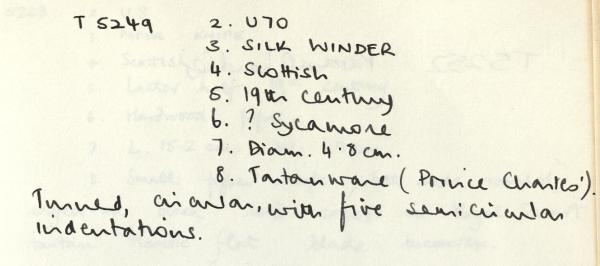 T 5249 2. U70
3. SILK WINDER
4. Scottish
5. 19th century
6. ? Sycamore
7. Diam. 4.8cm.
8. Tartanware (Prince Charles').
Turned, circular, with five semicircular
indentations.